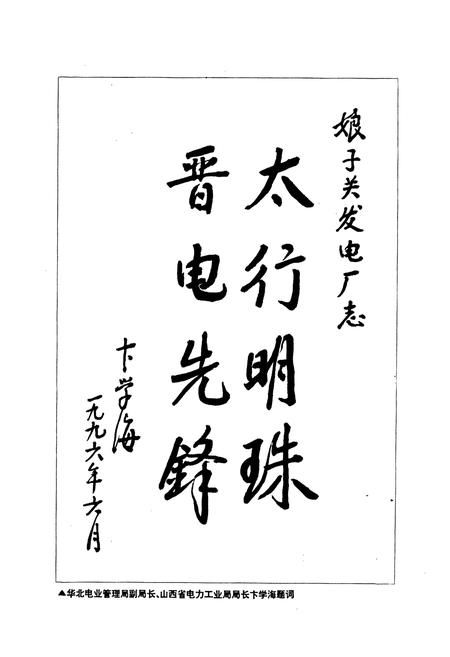 娘子关发电厂志
太行明珠
晋电先锋
卞学海
一九九六年六月
▲华北电业管理局副局长、山西省电力工业局局长卞学海题词